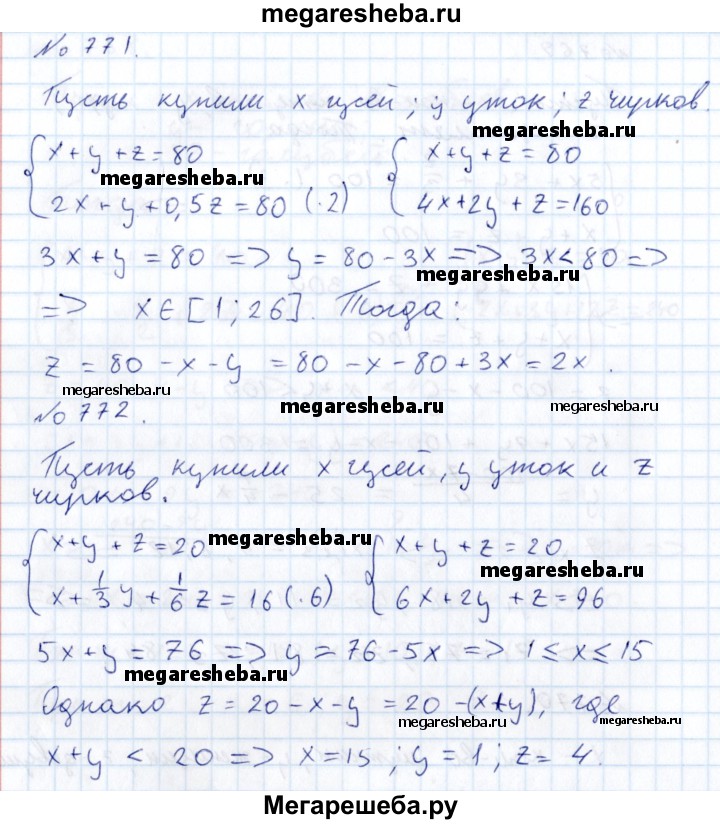 megaresheba.ru
№ 771.
Пусть купили x гусей; y уток; z чирков.
megaresheba.ru
{ x + y + z = 80 { x + y + z = 80
megaresheba.ru
2x + y + 0,5z = 80 (·2) 4x + 2y + z = 160
3x + y = 80 => y = 80 - 3x => 3x < 80 =>
megaresheba.ru
=> x ∈ [1; 26]. Тогда:
z = 80 - x - y = 80 - x - 80 + 3x = 2x.
megaresheba.ru
№ 772. megaresheba.ru megaresheba.ru
Пусть купили x гусей, y уток и z
чирков.
{ x + y + z = 20 megaresheba.ru { x + y + z = 20
megaresheba.ru
x + 1/3 y + 1/6 z = 16 (·6) 6x + 2y + z = 96
5x + y = 76 => y = 76 - 5x => 1 ≤ x ≤ 15
megaresheba.ru
Однако z = 20 - x - y = 20 - (x + y), где
megaresheba.ru megaresheba.ru
x + y < 20 => x = 15; y = 1; z = 4.
Мегарешеба.ру